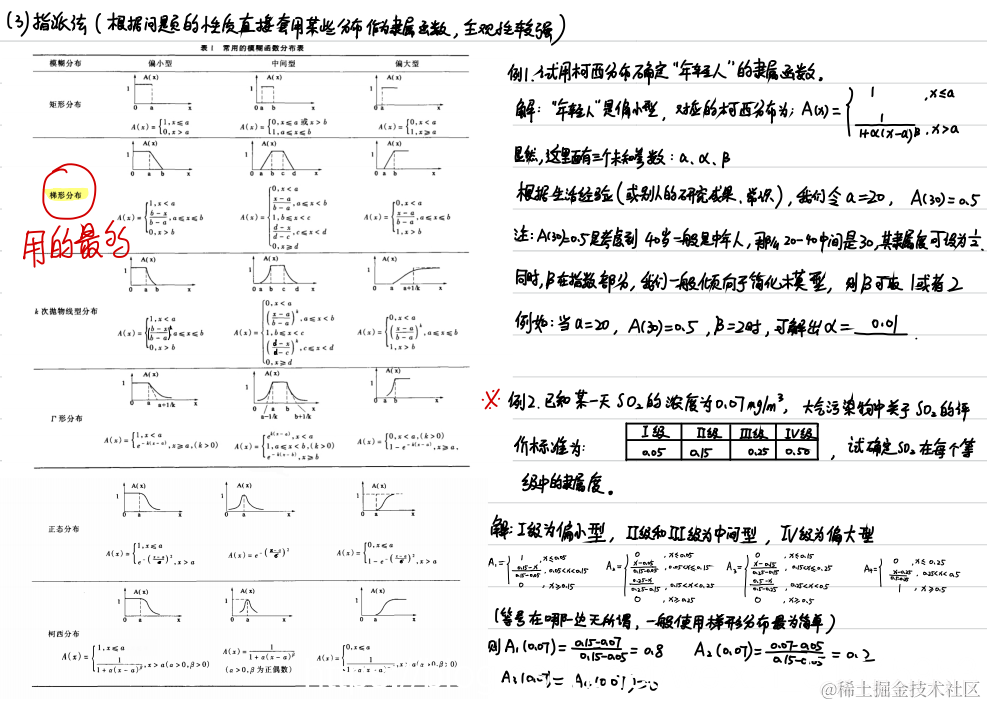 (3)指派法(根据问题的性质直接套用某些分布作为隶属函数,主观性较强)
表1 常用的模糊函数分布表
模糊分布 偏小型 中间型 偏大型
矩形分布
A(x)={1,x≤a 0,x>a
A(x)={0,x≤a 或 x>b 1,a≤x≤b
A(x)={0,x<a 1,x≥a
梯形分布
用的最多
A(x)={1,x<a (b-x)/(b-a),a≤x≤b 0,x>b
A(x)={0,x<a (x-a)/(b-a),a≤x<b 1,b≤x<c (d-x)/(d-c),c≤x<d 0,x≥d
A(x)={0,x<a (x-a)/(b-a),a≤x≤b 1,x>b
k次抛物线型分布
A(x)={1,x<a ((b-x)/(b-a))^k,a≤x≤b 0,x>b
A(x)={0,x<a ((x-a)/(b-a))^k,a≤x<b 1,b≤x<c ((d-x)/(d-c))^k,c≤x<d 0,x≥d
A(x)={0,x<a ((x-a)/(b-a))^k,a≤x≤b 1,x>b
Γ形分布
A(x)={1,x<a e^-k(x-a),x≥a,(k>0)
A(x)={e^k(x-a),x<a 1,a≤x≤b,(k>0) e^-k(x-b),x≥b
A(x)={0,x<a,(k>0) 1-e^-k(x-a),x≥a,
正态分布
A(x)={1,x≤a e^-((x-a)/σ)^2,x>a
A(x)=e^-((x-a)/σ)^2
A(x)={0,x≤a 1-e^-((x-a)/σ)^2,x>a
柯西分布
A(x)={1,x≤a 1/(1+α(x-a)^β),x>a(α>0,β>0)
A(x)=1/(1+α(x-a)^β) (α>0,β为正偶数)
A(x)={0,x≤a
例1.试用柯西分布确定"年轻人"的隶属函数。
解:"年轻人"是偏小型,对应的柯西分布为;A(x)={1 ,x≤a 1/(1+α(x-a)^β),x>a
显然,这里面有三个未知参数:a、α、β
根据生活经验(或别人的研究成果、常识),我们令a=20,A(30)=0.5
注:A(30)=0.5是考虑到40岁一般是中年人,那么20-40中间是30,其隶属度可设为1/2.
同时,β在指数部分,我们一般倾向于简化模型,则β可取1或者2
例如:当a=20,A(30)=0.5,β=2时,可解出α=0.01.
※例2.已知某一天SO₂的浓度为0.07mg/m³,大气污染物中关于SO₂的评
价标准为: Ⅰ级 Ⅱ级 Ⅲ级 Ⅳ级
0.05 0.15 0.25 0.50 ,试确定SO₂在每个等
级中的隶属度。
解:Ⅰ级为偏小型,Ⅱ级和Ⅲ级为中间型,Ⅳ级为偏大型
A₁={1 x≤0.05 (0.15-x)/(0.15-0.05),0.05<x<0.15 0 ,x≥0.15
A₂={0 ,x≤0.05 (x-0.05)/(0.15-0.05),0.05<x≤0.15 (0.25-x)/(0.25-0.15),0.15<x<0.25 0 ,x≥0.25
A₃={0 ,x≤0.15 (x-0.15)/(0.25-0.15),0.15<x≤0.25 (0.5-x)/(0.5-0.25),0.25<x<0.5 0 ,x≥0.5
A₄={0 ,x≤0.25 (x-0.25)/(0.5-0.25),0.25<x<0.5 1 ,x≥0.5
(等号在哪一边无所谓,一般使用梯形分布最为简单)
则A₁(0.07)=(0.15-0.07)/(0.15-0.05)=0.8 A₂(0.07)=(0.07-0.05)/(0.15-0.05)=0.2
A₃(0.07)=A₄(0.07)=0
@稀土掘金技术社区